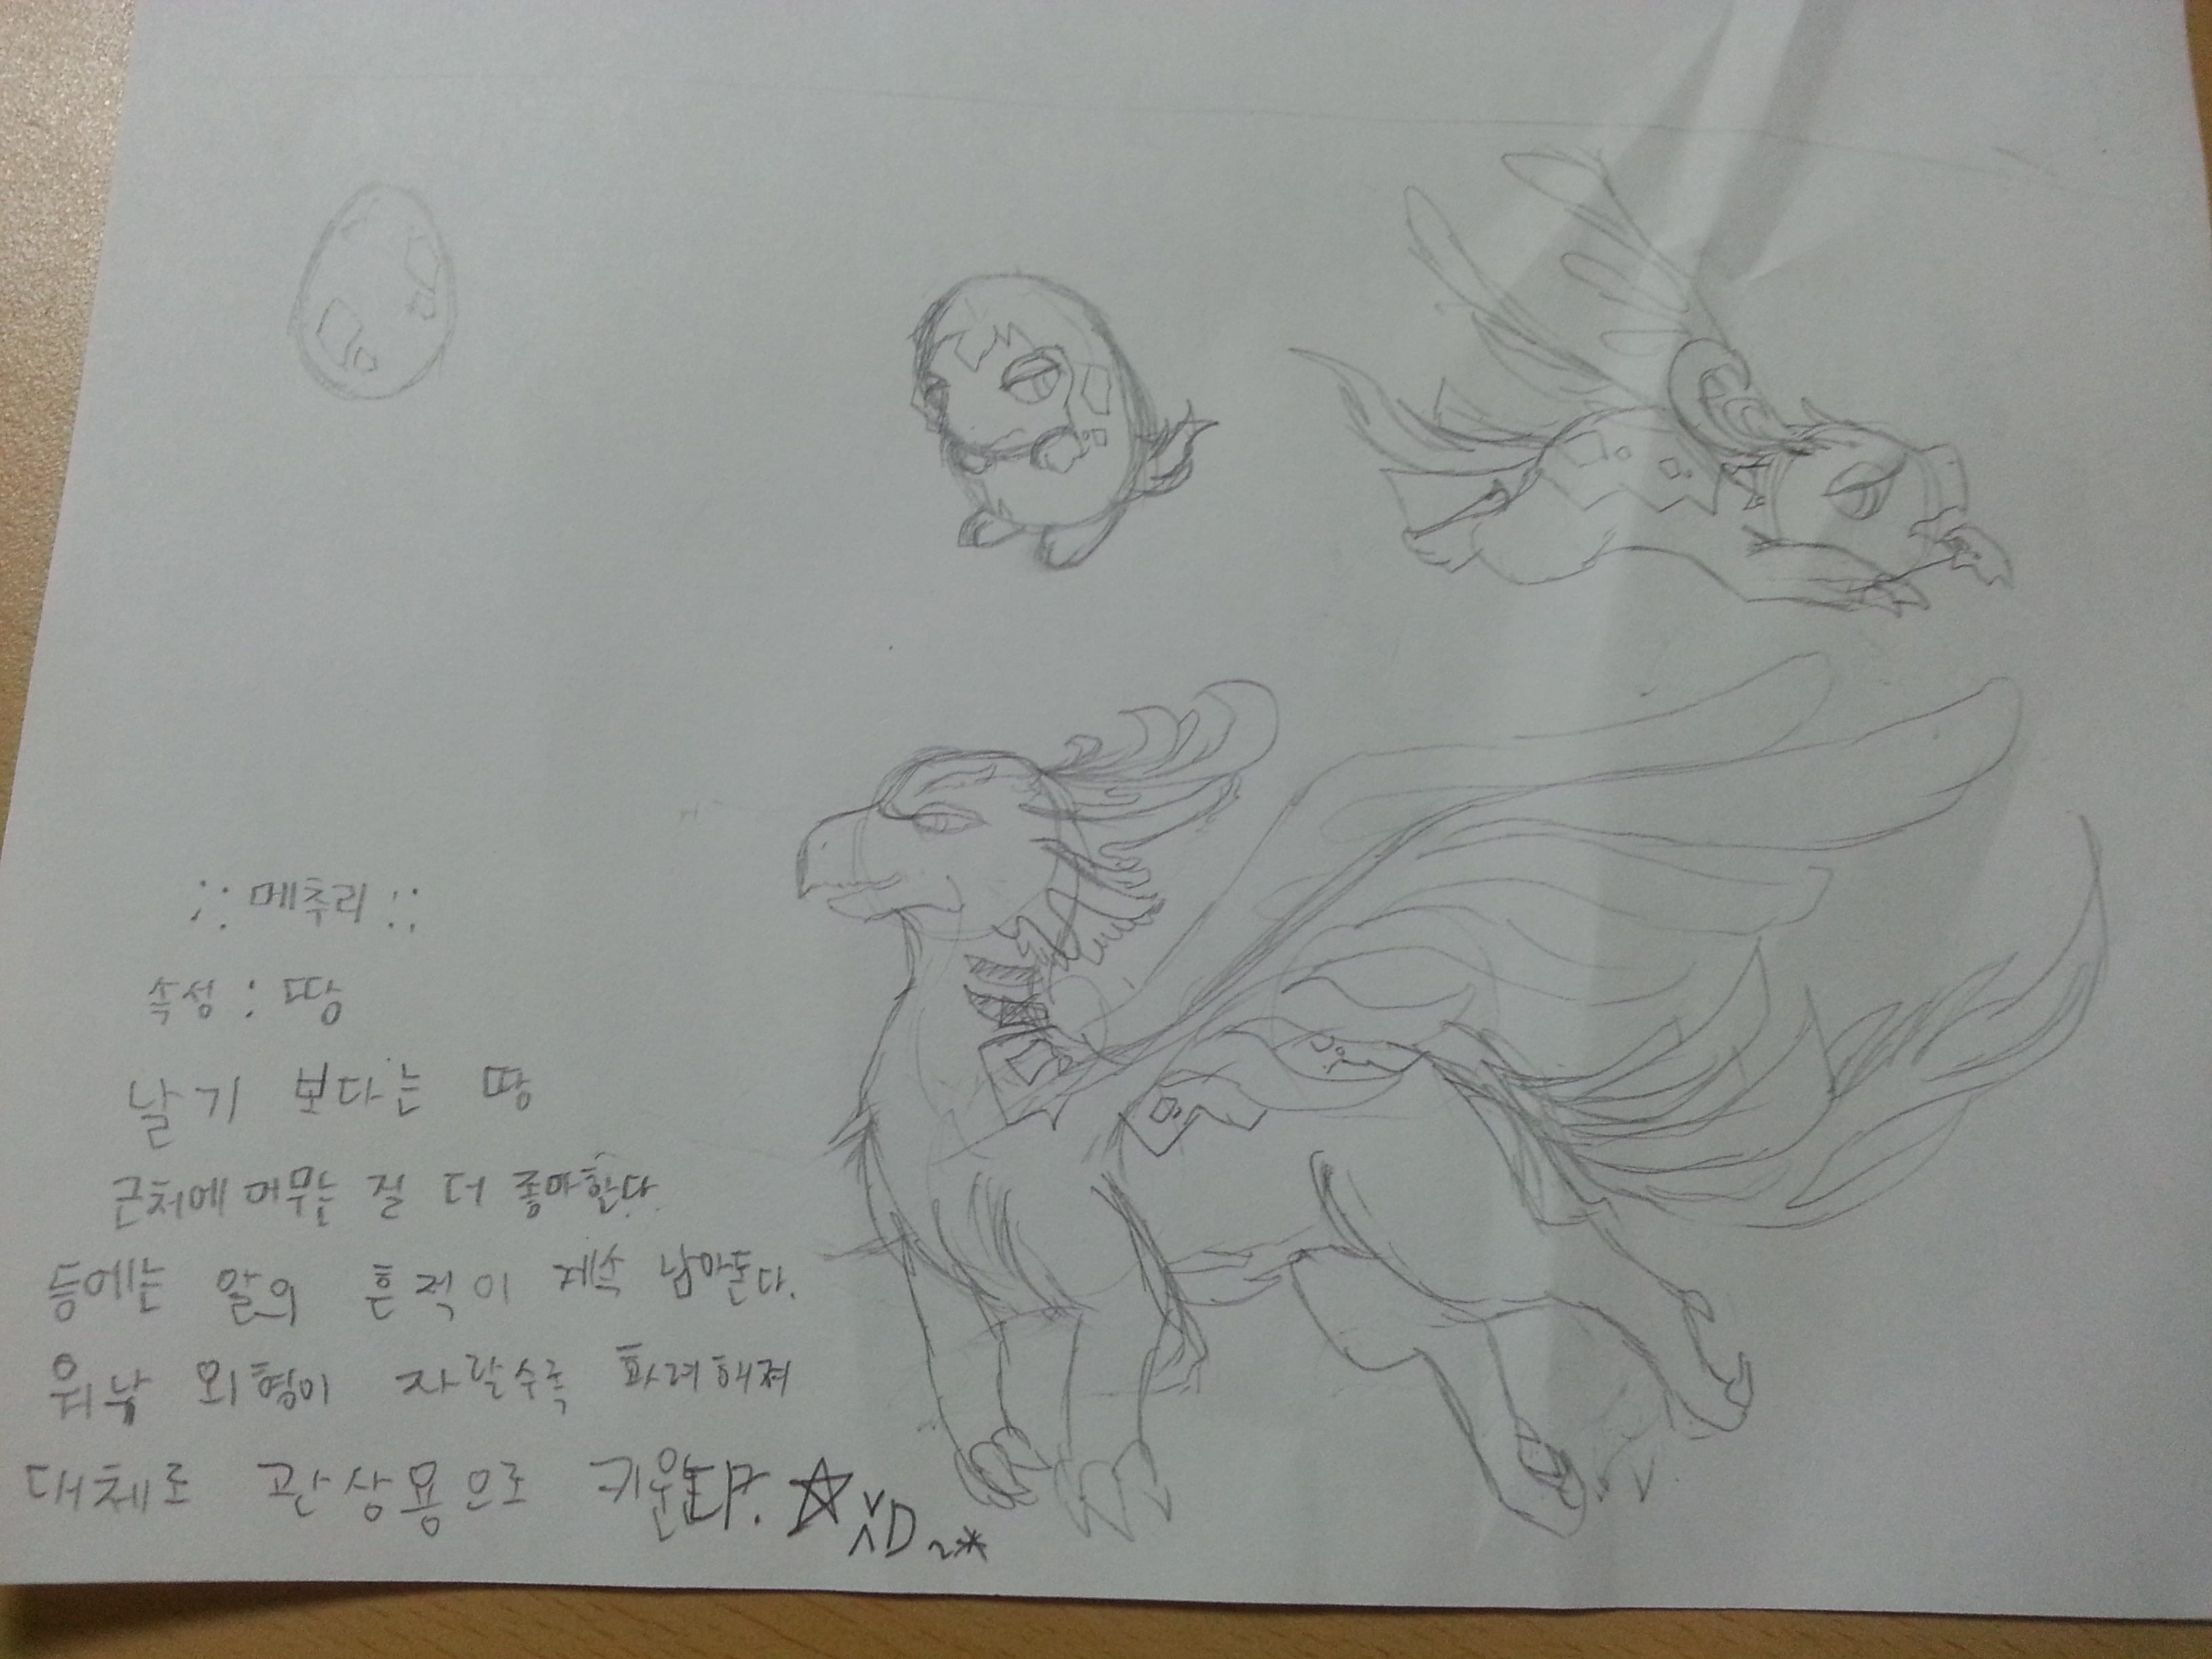 :·메추리:·
속성 : 땅
날기 보다는 땅
근처에 머무는 걸 더 좋아한다.
등에는 알의 흔적이 계속 남아돈다.
워낙 외형이 자랄수록 화려해져
대체로 관상용으로 키운다. ☆XD~*